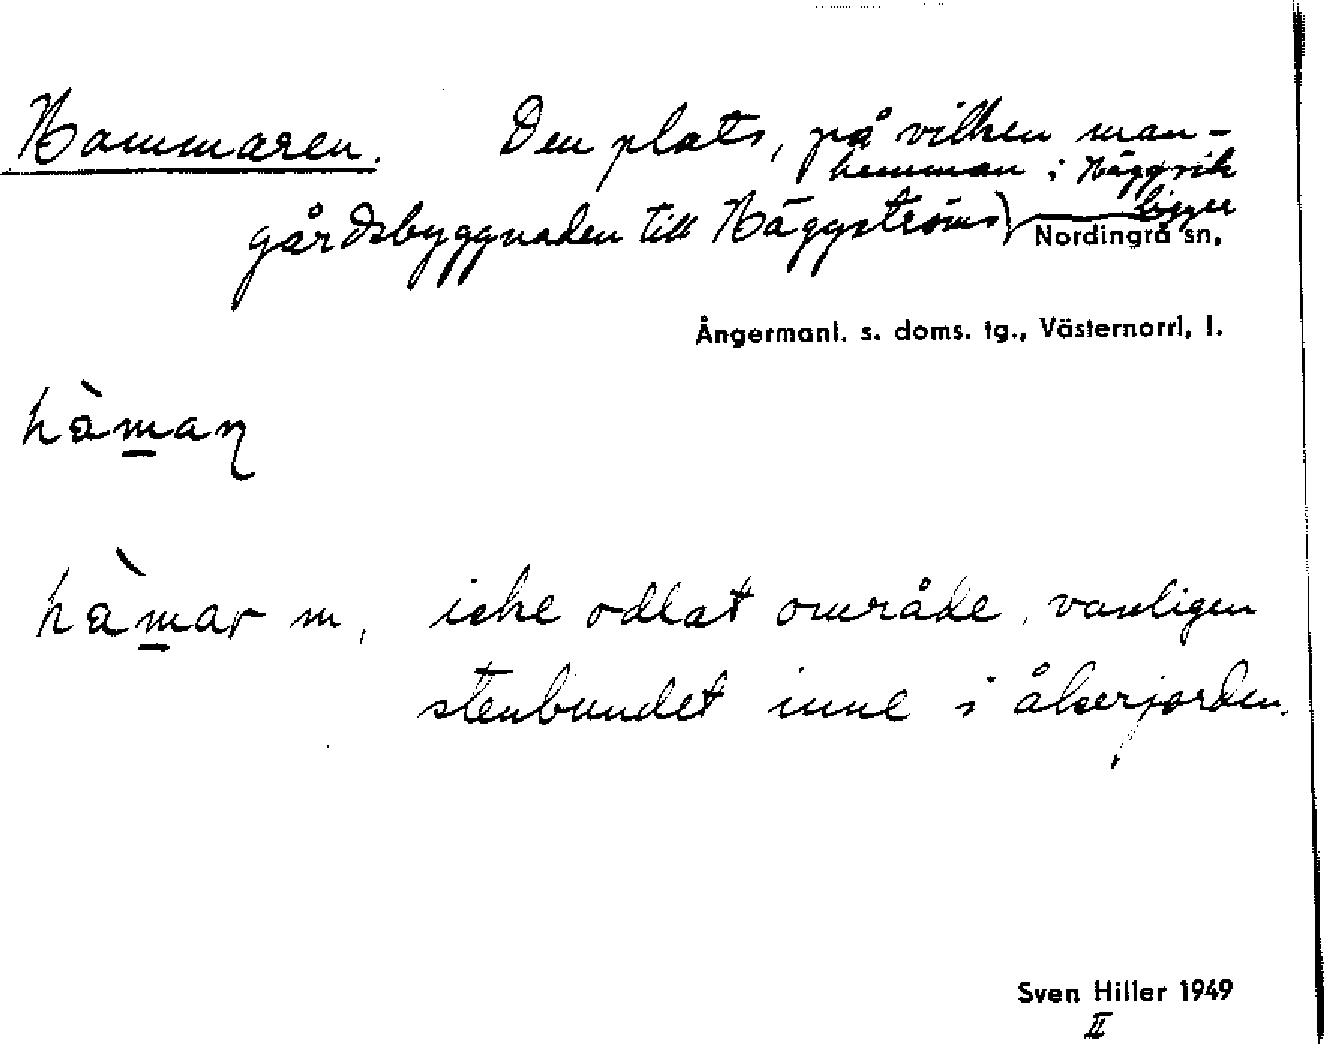 Hammaren. Den plats, på vilken man-
hemman i Häggvik
gårdsbyggnaden till Häggströms) ligger
Nordingrå sn,
Ångermanl. s. doms. tg., Västernorrl. l.
hàmaɳ
hàmar m, icke odlat område, vanligen
stenbundet inne i åkerjorden.
Sven Hiller 1949
II